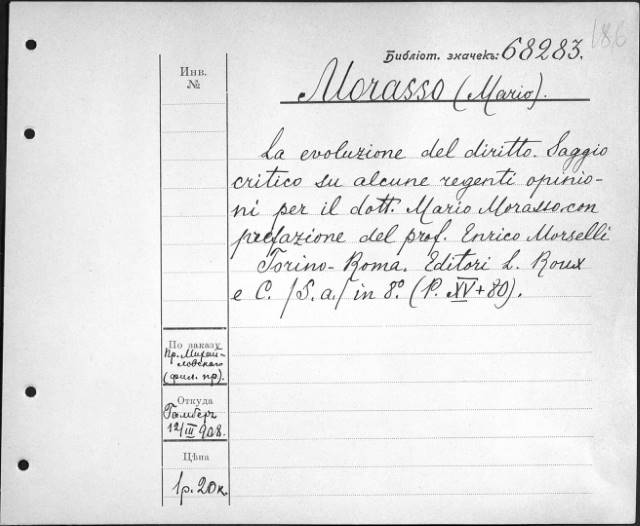 186
Библiот. значекъ: 68283.
Инв.
№
Morasso (Mario).
La evoluzione del diritto. Saggio
critico su alcune regenti opinio-
ni per il dott. Mario Morasso, con
prefazione del prof. Enrico Morselli
Torino-Roma. Editori L. Roux
e C. /S. a./ in 8°. (P. XV+80).
По заказу
Пр. Михай-
ловскаго
(фил. пр).
Откуда
Гамберъ
12/III 908.
Цѣна
1р. 20к.